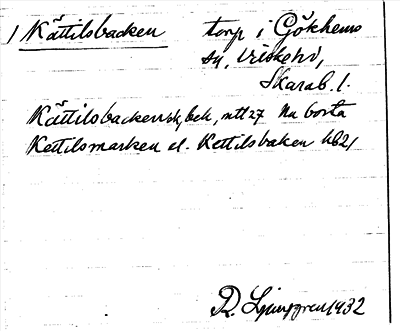 1 Kättilsbacken torp i Gökhems
sn, Vilske hd,
Skarab. l.
Kättilsbacken sk, beb, mtl 27 Nu borta
Kettilsmarken el. Kettilsbaken hb 21
R. Ljunggren 1932